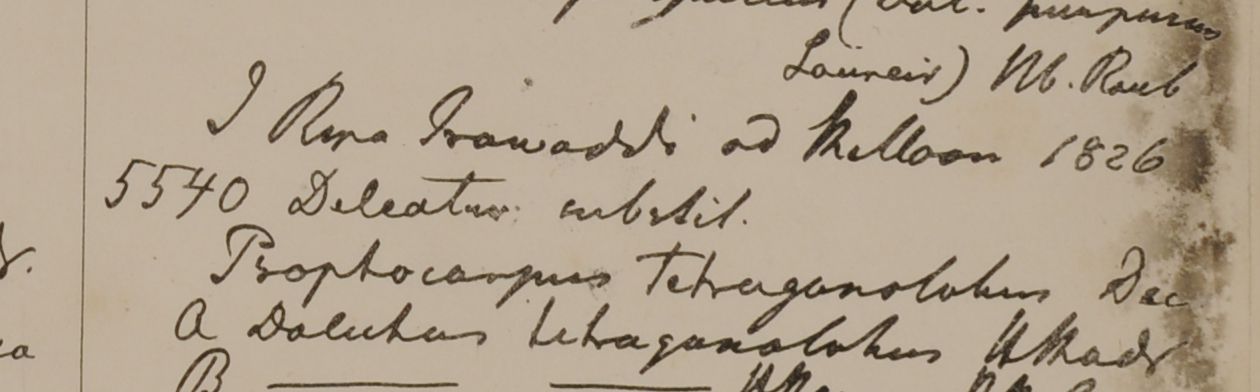 (var. purpureus
Loureir) Hb. Roxb
I Ripa Irawaddi ad Melloon 1826
5540 Deleatur substit.
Psophocarpus tetragonolobus Dec
A Dolichus tetragonolobus HMadr
B